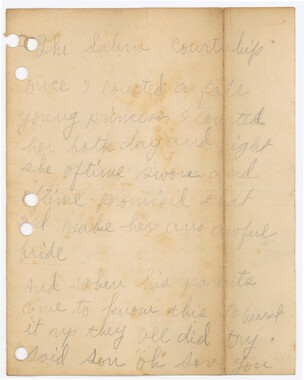 The Salers courtship
once I courted a fair
young princess I courted
her both day and night
she oftime swore and
oftime promised that
I'd make her one lawful
bride
and when his parents
come to know this to bust
it up they all did try.
said son oh son you